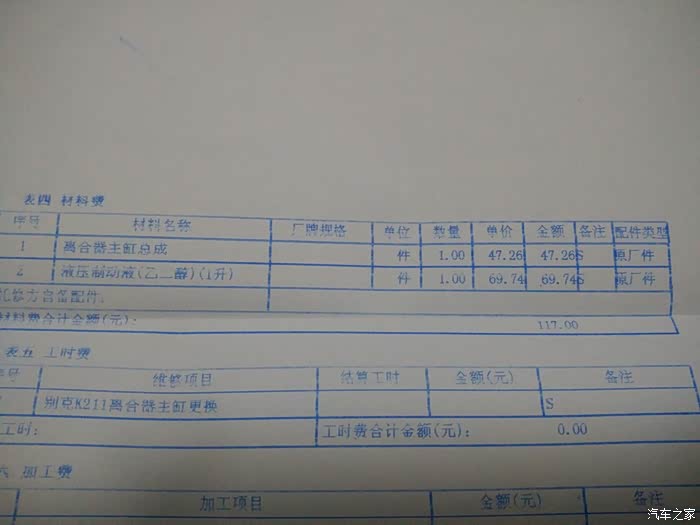 表四 材料费
序号 材料名称 厂牌规格 单位 数量 单价 金额 备注 配件类型
1 离合器主缸总成 件 1.00 47.26 47.26 S 原厂件
2 液压制动液(乙二醇)(1升) 件 1.00 69.74 69.74 S 原厂件
托修方自备配件:
材料费合计金额(元): 117.00
表五 工时费
序号 维修项目 结算工时 金额(元) 备注
别克K211离合器主缸更换 S
工时: 工时费合计金额(元): 0.00
六 加工费
加工项目 金额(元) 备注
汽车之家